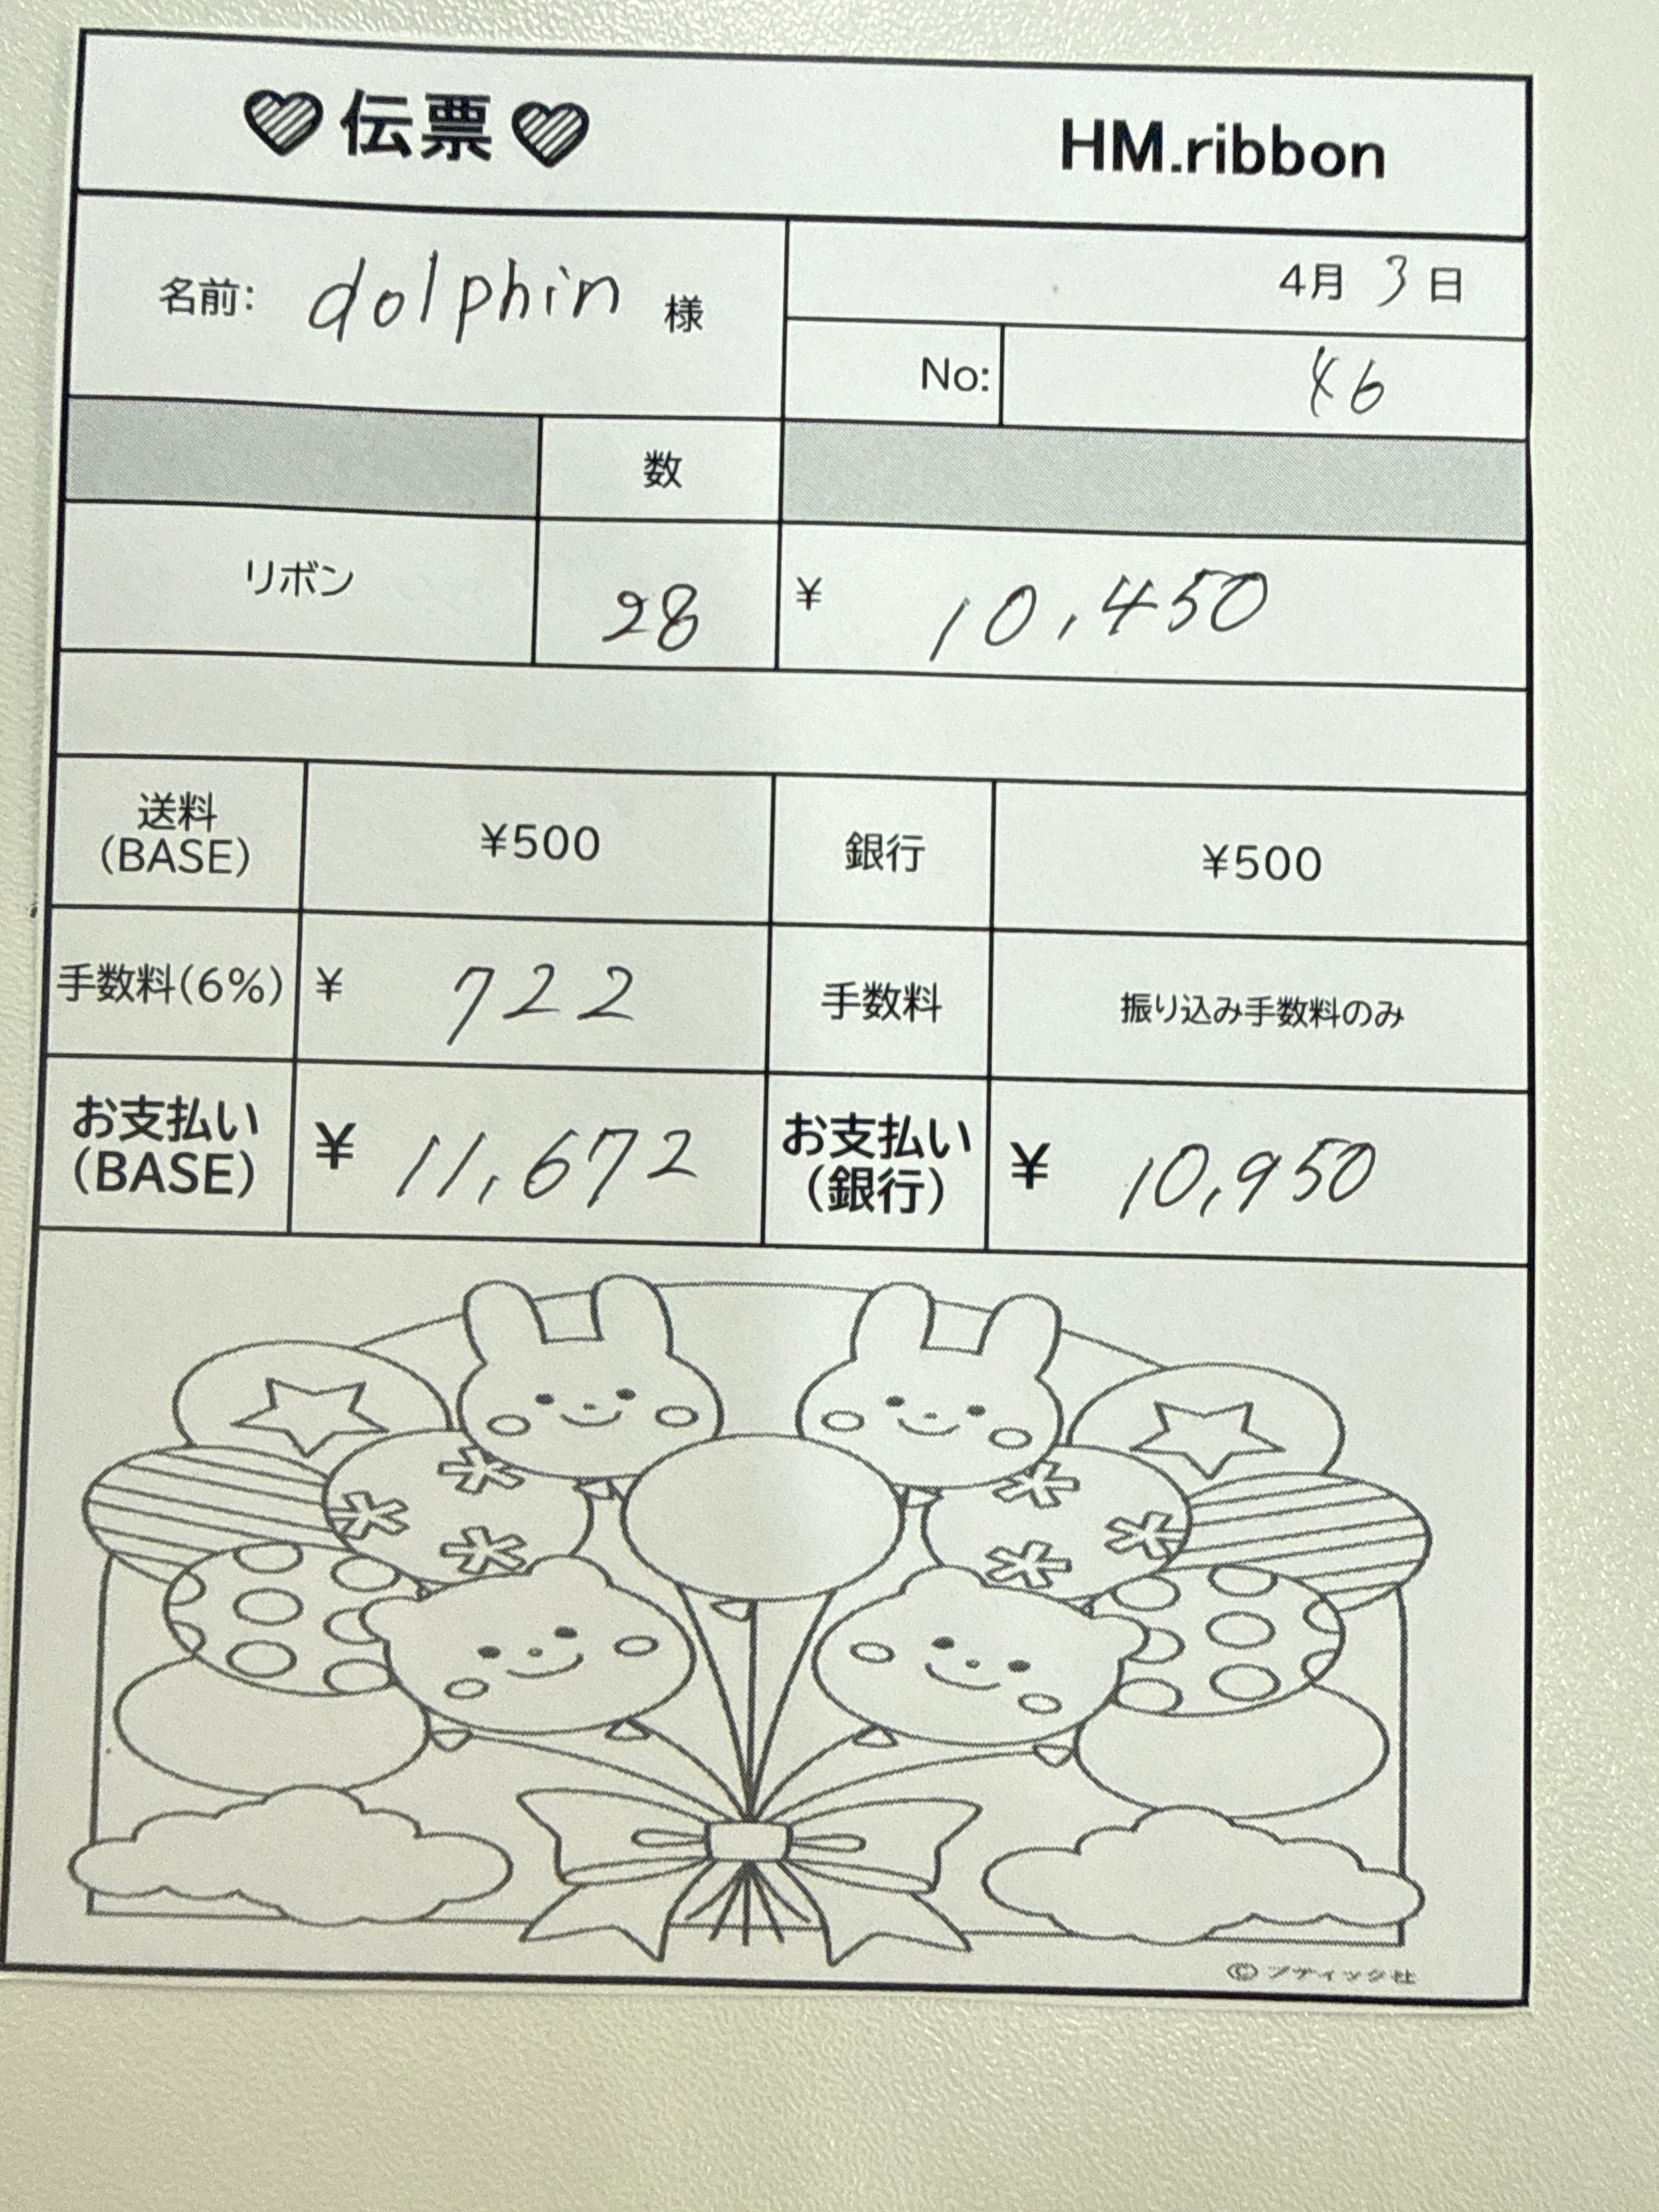 伝票 HM.ribbon
名前: dolphin 様
4月 3日
No: 46
数
リボン 28 ¥ 10,450
送料(BASE) ¥500 銀行 ¥500
手数料(6%) ¥ 722 手数料 振り込み手数料のみ
お支払い(BASE) ¥ 11,672 お支払い(銀行) ¥ 10,950
© ブティック社